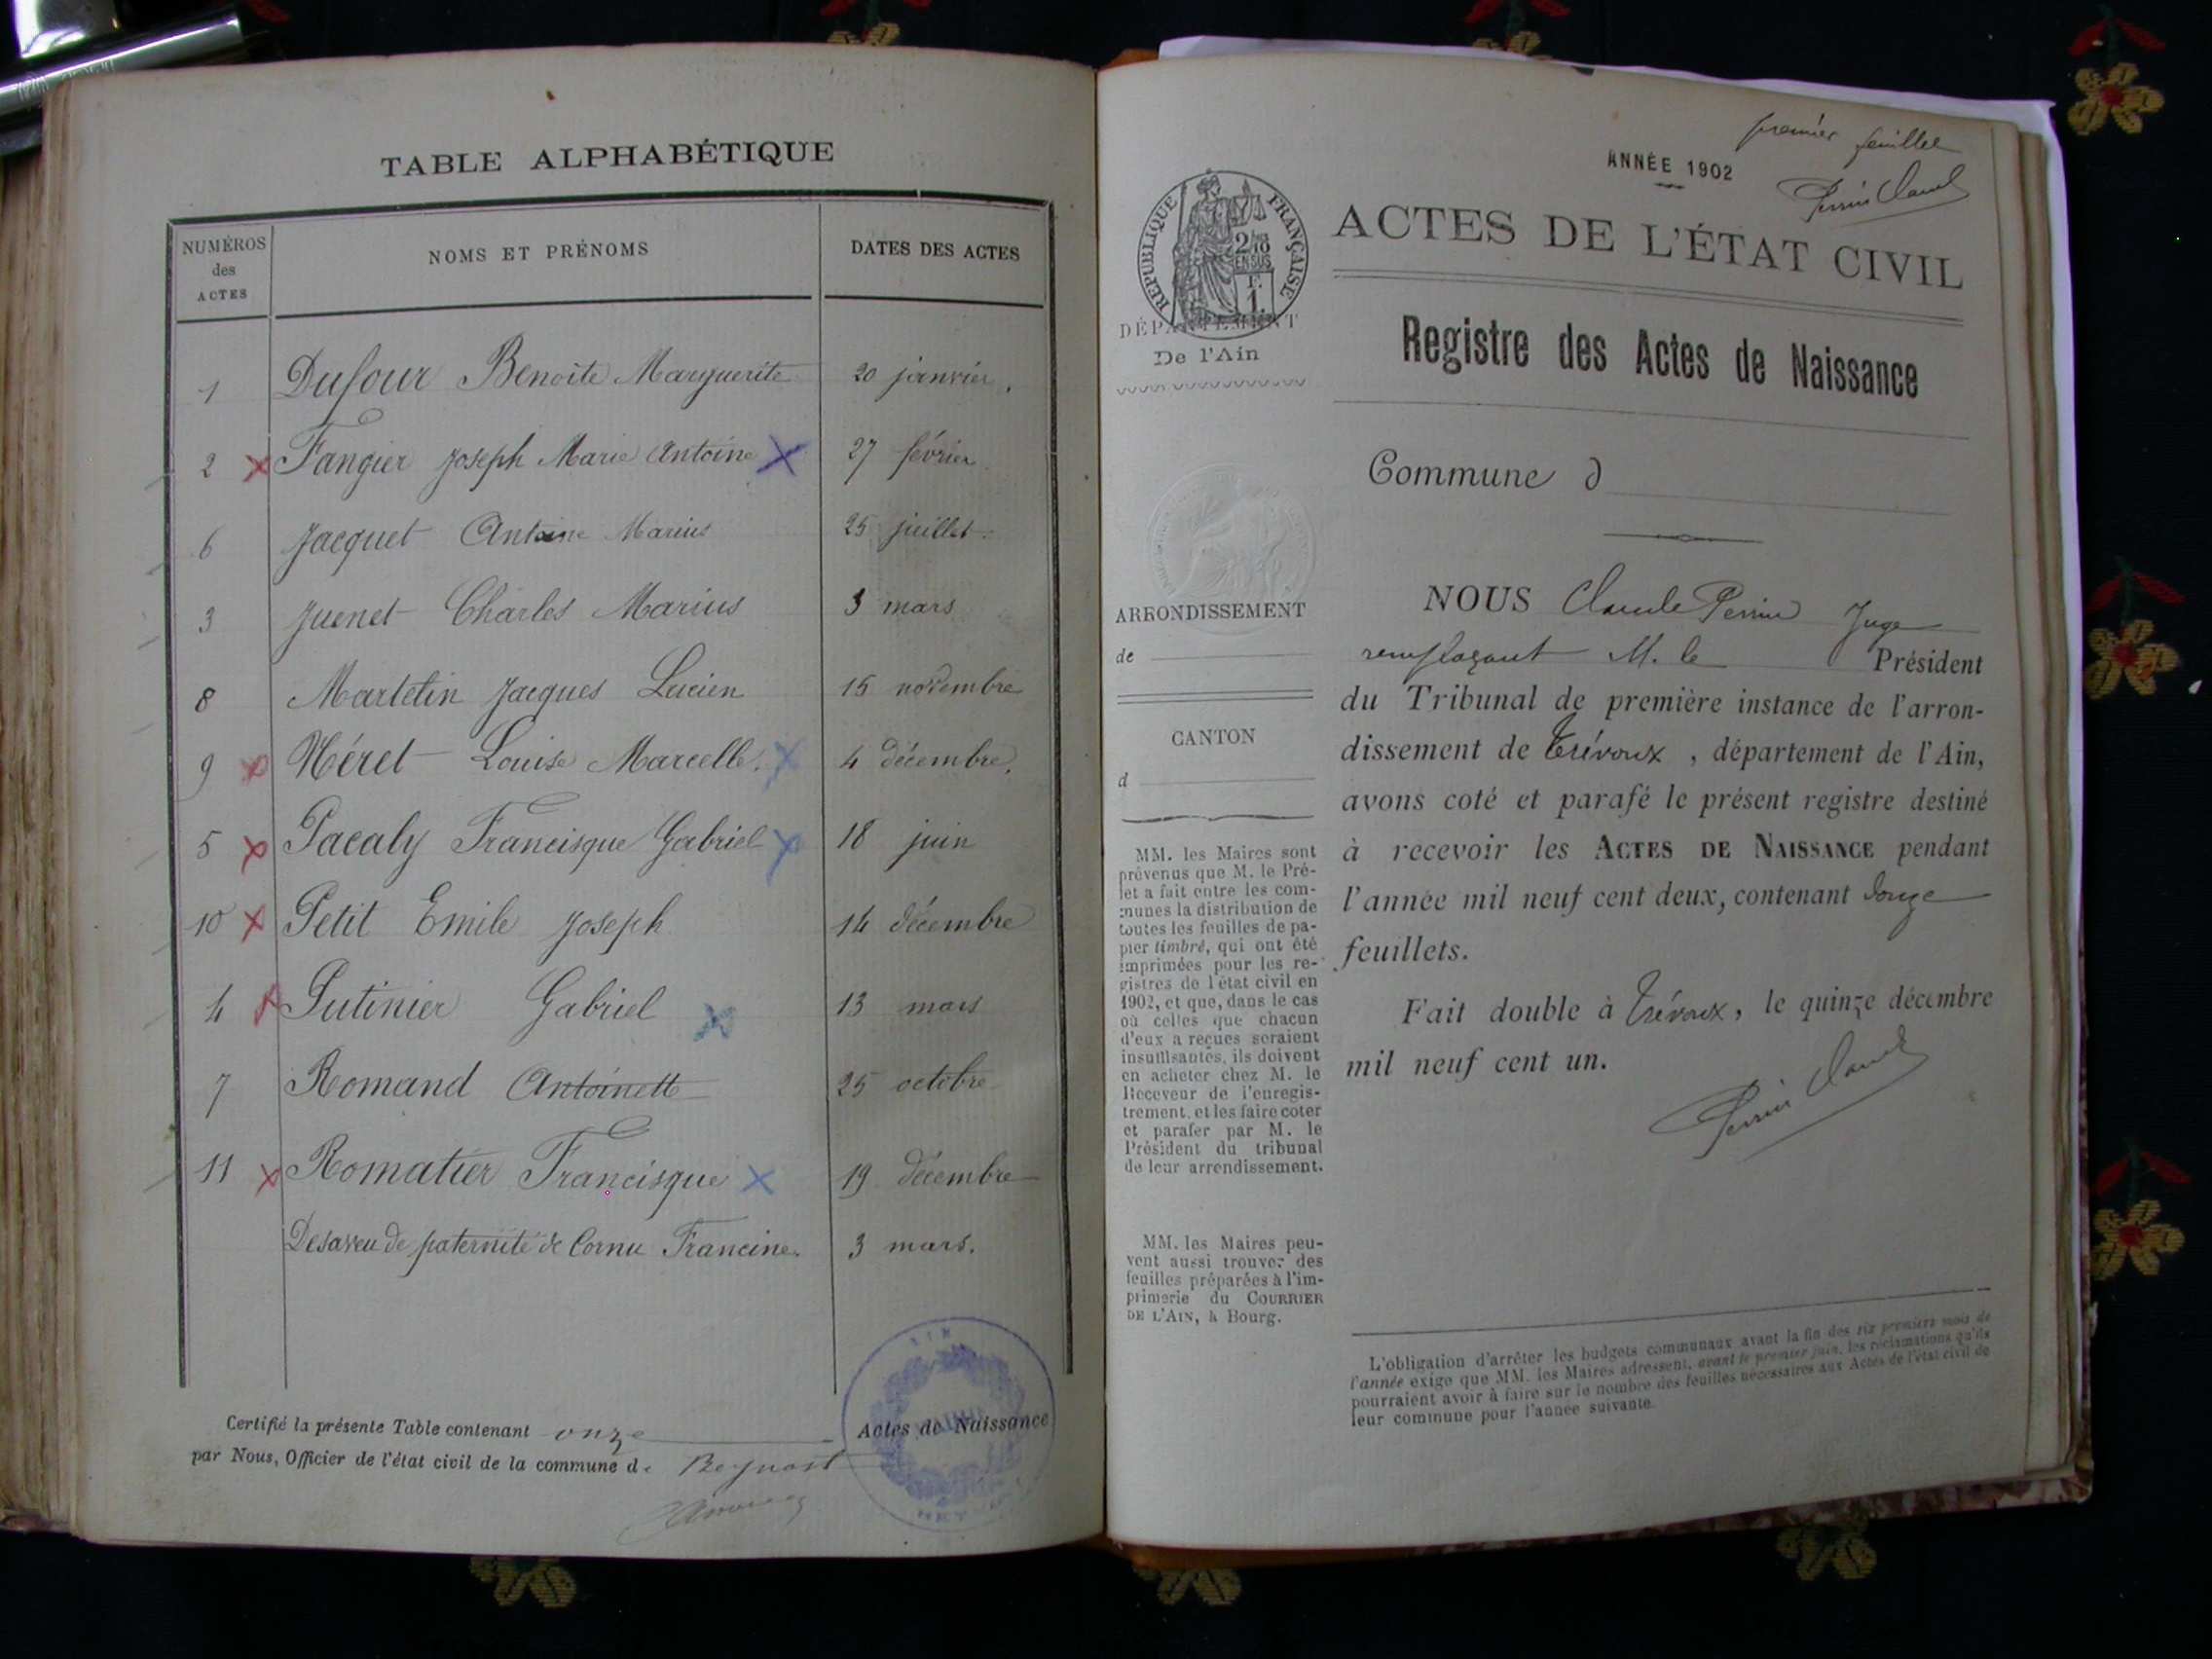 TABLE ALPHABÉTIQUE
NUMÉROS des ACTES
NOMS ET PRÉNOMS
DATES DES ACTES
1 Dufour Benoîte Marguerite 20 janvier.
2 Fangier Joseph Marie Antoine 27 février
6 Jacquet Antoine Marius 25 juillet
3 Juenet Charles Marius 3 mars
8 Martelin Jacques Lucien 15 novembre
9 Néret Louise Marcelle. 4 décembre.
5 Pacaly Francisque Gabriel 18 juin
10 Petit Emile Joseph 14 décembre
4 Putinier Gabriel 13 mars
7 Romand Antoinette 25 octobre
11 Romatier Francisque 19 décembre
Desaveu de paternité de Cornu Francine. 3 mars.
Certifié la présente Table contenant onze Actes de Naissance
par Nous, Officier de l'état civil de la commune de Reyrieux
AIN
MAIRIE
premier feuillet
ANNÉE 1902
Perrin Claude
RÉPUBLIQUE FRANÇAISE
2/10 EN SUS
1 F.
ACTES DE L'ÉTAT CIVIL
DÉPARTEMENT
De l'Ain
Registre des Actes de Naissance
Commune d
ARRONDISSEMENT
de
CANTON
d
MM. les Maires sont
prévenus que M. le Pré-
fet a fait entre les com-
munes la distribution de
toutes les feuilles de pa-
pier timbré, qui ont été
imprimées pour les re-
gistres de l'état civil en
1902, et que, dans le cas
où celles que chacun
d'eux a reçues seraient
insuffisantes, ils doivent
en acheter chez M. le
Receveur de l'enregis-
trement, et les faire coter
et parafer par M. le
Président du tribunal
de leur arrondissement.
MM. les Maires peu-
vent aussi trouver des
feuilles préparées à l'im-
primerie du COURRIER
DE L'AIN, à Bourg.
NOUS Claude Perrin Juge
remplaçant M. le Président
du Tribunal de première instance de l'arron-
dissement de Trévoux, département de l'Ain,
avons coté et parafé le présent registre destiné
à recevoir les ACTES DE NAISSANCE pendant
l'année mil neuf cent deux, contenant douze
feuillets.
Fait double à Trévoux, le quinze décembre
mil neuf cent un.
Perrin Claude
L'obligation d'arrêter les budgets communaux avant la fin des six premiers mois de
l'année exige que MM. les Maires adressent, avant le premier juin, les réclamations qu'ils
pourraient avoir à faire sur le nombre des feuilles nécessaires aux Actes de l'état civil de
leur commune pour l'année suivante.